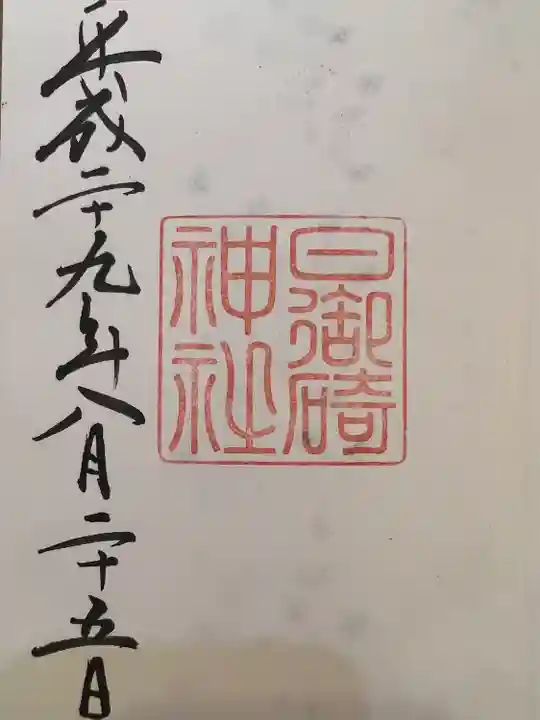 日御碕
神社
平成二十九年八月二十五日